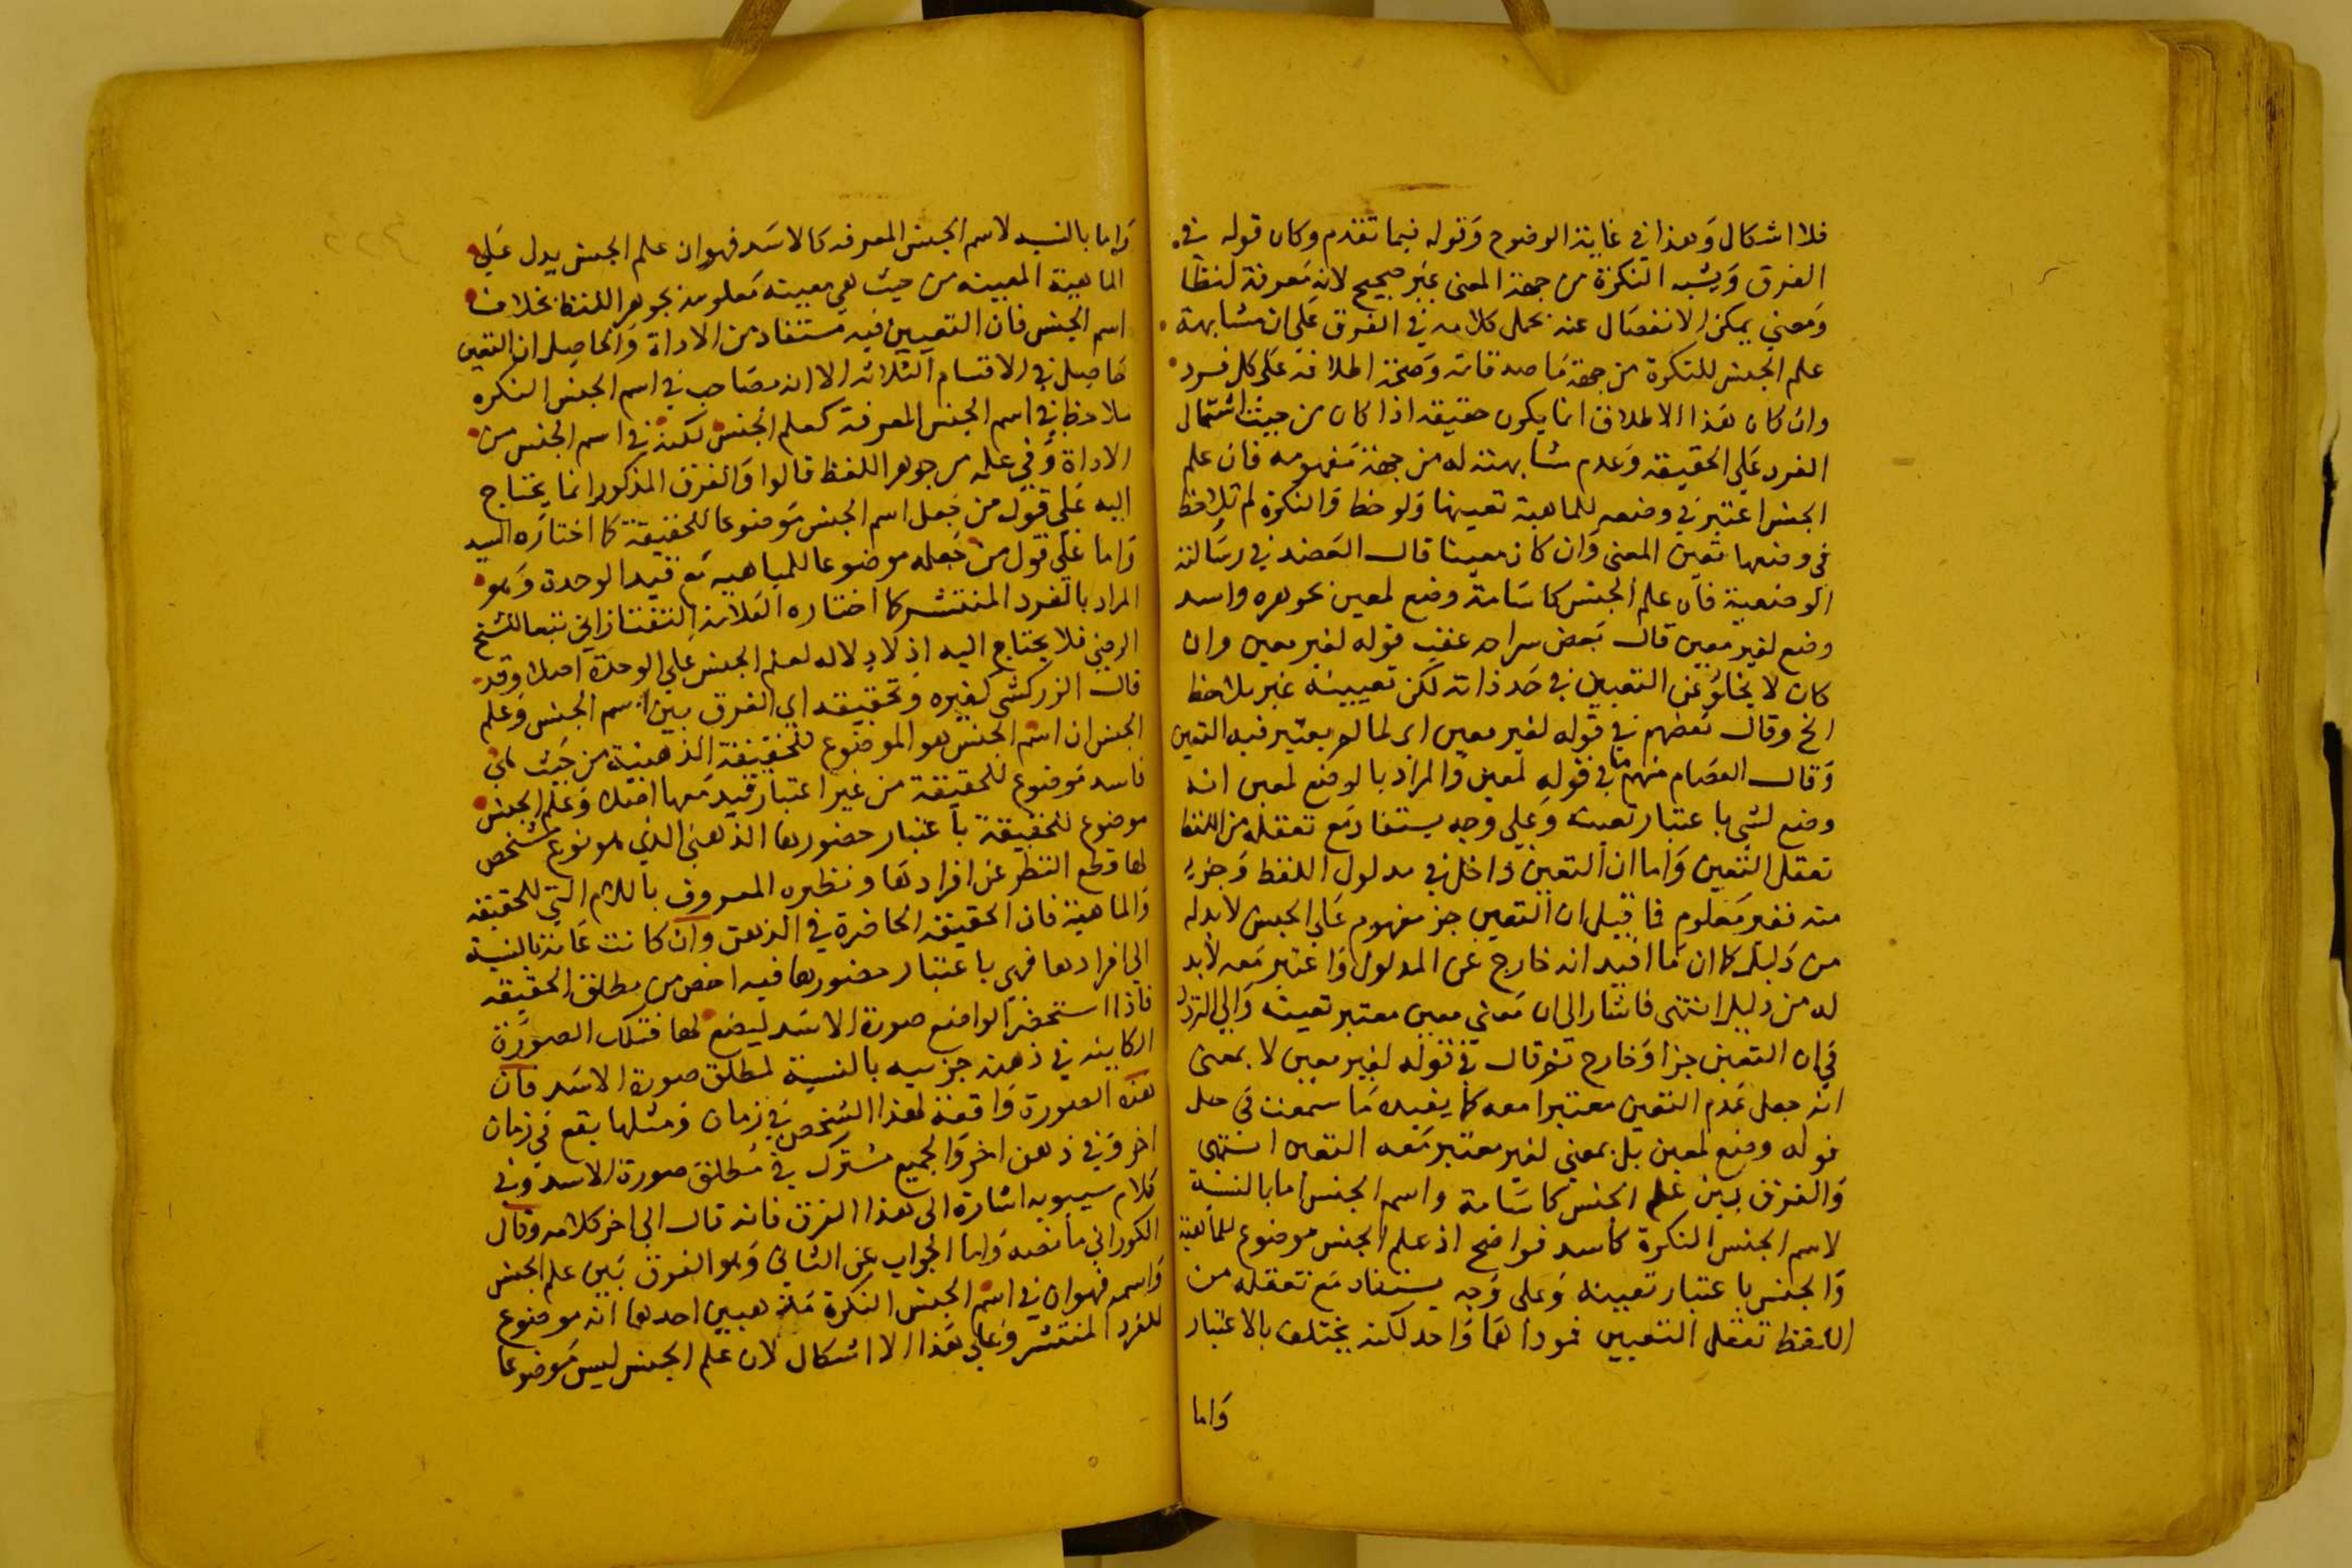 فلا اشكال وهذا في غاية الوضوح وقوله فيما تقدم وكان قوله في
الفرق ويشبه النكرة من جهة المعنى غير صحيح لانه معرفة لفظا
ومعنى يمكن الانفصال عنه بحمل كلامه في الفرق على ان مشابهة
علم الجنس للنكرة من جهة ما صدقاته وصحة اطلاقه على كل فرد
وان كان هذا الاطلاق انما يكون حقيقة اذا كان من حيث اشتمال
الفرد على الحقيقة وعدم مشابهته له من جهة مفهومه فان علم
الجنس اعتبر في وضعه للماهية تعينها ولوحظ والنكرة لم تلاحظ
في وضعها تعين المعنى وان كان معينا قال العضد في رسالته
الوضعية فان علم الجنس كاسامة وضع لمعين بجوهره واسد
وضع لغير معين قال بعض شراحه عقب قوله لغير معين وان
كان لا يخلو عن التعيين في حد ذاته لكن تعيينه غير ملاحظ
الخ وقال بعضهم في قوله لغير معين اى لما لم يعتبر فيه التعين
وقال العصام منهم في قوله لمعين والمراد بالوضع لمعين انه
وضع لشي باعتبار تعينه وعلى وجه يستفاد مع تعقله من اللفظ
تعقل التعين واما ان التعين داخل في مدلول اللفظ وجزء
منه فغير معلوم فما قيل ان التعين جز مفهوم علم الجنس لابد له
من دليل كما ان ما افيد انه خارج عن المدلول واعتبر معه لابد
له من دليل انتهى فاشار الى ان معنى معين معتبر تعينه والى التردد
في ان التعين جزا وخارج ثم قال في قوله لغير معين لا بمعنى
انه جعل عدم التعين معتبرا معه كما يفيده ما سمعت في حل
قوله وضع لمعين بل بمعنى لغير معتبر معه التعين انتهى
والفرق بين علم الجنس كاسامة واسم الجنس اما بالنسبة
لاسم الجنس النكرة كاسد فواضح اذ علم الجنس موضوع للماهية
والجنس باعتبار تعيينه وعلى وجه يستفاد مع تعقله من
اللفظ تعقل التعيين فموداهما واحد لكنه يختلف بالاعتبار
واما
واما بالنسبه لاسم الجنس المعرفه كالاسد فهو ان علم الجنس يدل على
الماهية المعينه من حيث هي معينه معلومة بجوهر اللفظ بخلاف
اسم الجنس فان التعيين فيه مستفاد من الاداة والحاصل ان التعين
حاصل في الاقسام الثلاثه الا انه مصاحب في اسم الجنس النكره
ملاحظ في اسم الجنس المعرفة كعلم الجنس لكنه في اسم الجنس من
الاداة وفي علمه من جوهر اللفظ قالوا والفرق المذكور انما يحتاج
اليه على قول من جعل اسم الجنس موضوعا للحقيقة كما اختاره السيد
واما على قول من جعله موضوعا للماهيه مع قيد الوحدة وهو
المراد بالفرد المنتشر كما اختاره العلامة التفتازاني تبعا للشيخ
الرضي فلا يحتاج اليه اذ لا دلاله لعلم الجنس على الوحدة اصلا وقد
قال الزركشي كغيره وتحقيقه اي الفرق بين اسم الجنس وعلم
الجنس ان اسم الجنس هو الموضوع للحقيقة الذهنية من حيث هي
فاسد موضوع للحقيقة من غير اعتبار قيد معها اصلا وعلم الجنس
موضوع للحقيقة باعتبار حضورها الذهني الذي هو نوع تشخص
لها وقطع النظر عن افرادها ونظيره المعروف باللام التي للحقيقه
والماهية فان الحقيقة الحاضرة في الذهن وان كانت عامة بالنسبة
الى افرادها فهي باعتبار حضورها فيه اخص من مطلق الحقيقه
فاذا استحضر الواضع صورة الاسد ليضع لها فتلك الصورة
الكاينه في ذهنه جزييه بالنسبة لمطلق صورة الاسد فان
هذه الصورة واقعة لهذا الشخص في زمان ومثلها يقع في زمان
اخر وفي ذهن اخر والجميع مشترك في مطلق صورة الاسد وفي
كلام سيبويه اشارة الى هذا الفرق فانه قال الى اخر كلامه وقال
الكوراني ما نصه واما الجواب عن الثاني وهو الفرق بين علم الجنس
واسمه فهو ان في اسم الجنس النكرة مذهبين احدهما انه موضوع
للفرد المنتشر وعلى هذا لا اشكال لان علم الجنس ليس موضوعا